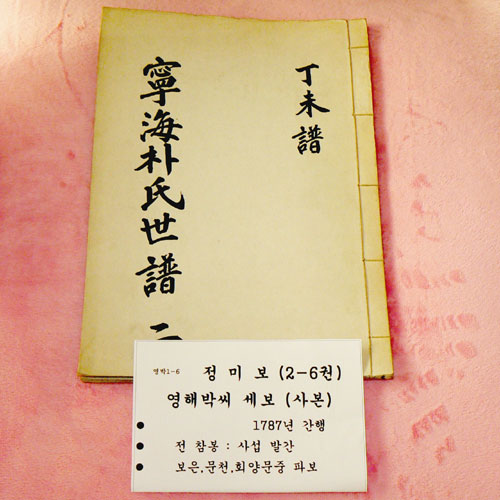 丁未譜
寧海朴氏世譜 二
영박1-6
정미보(2-6권)
영해박씨 세보(사본)
1787년 간행
전 참봉 : 사섭 발간
보은,문천,회양문중 파보